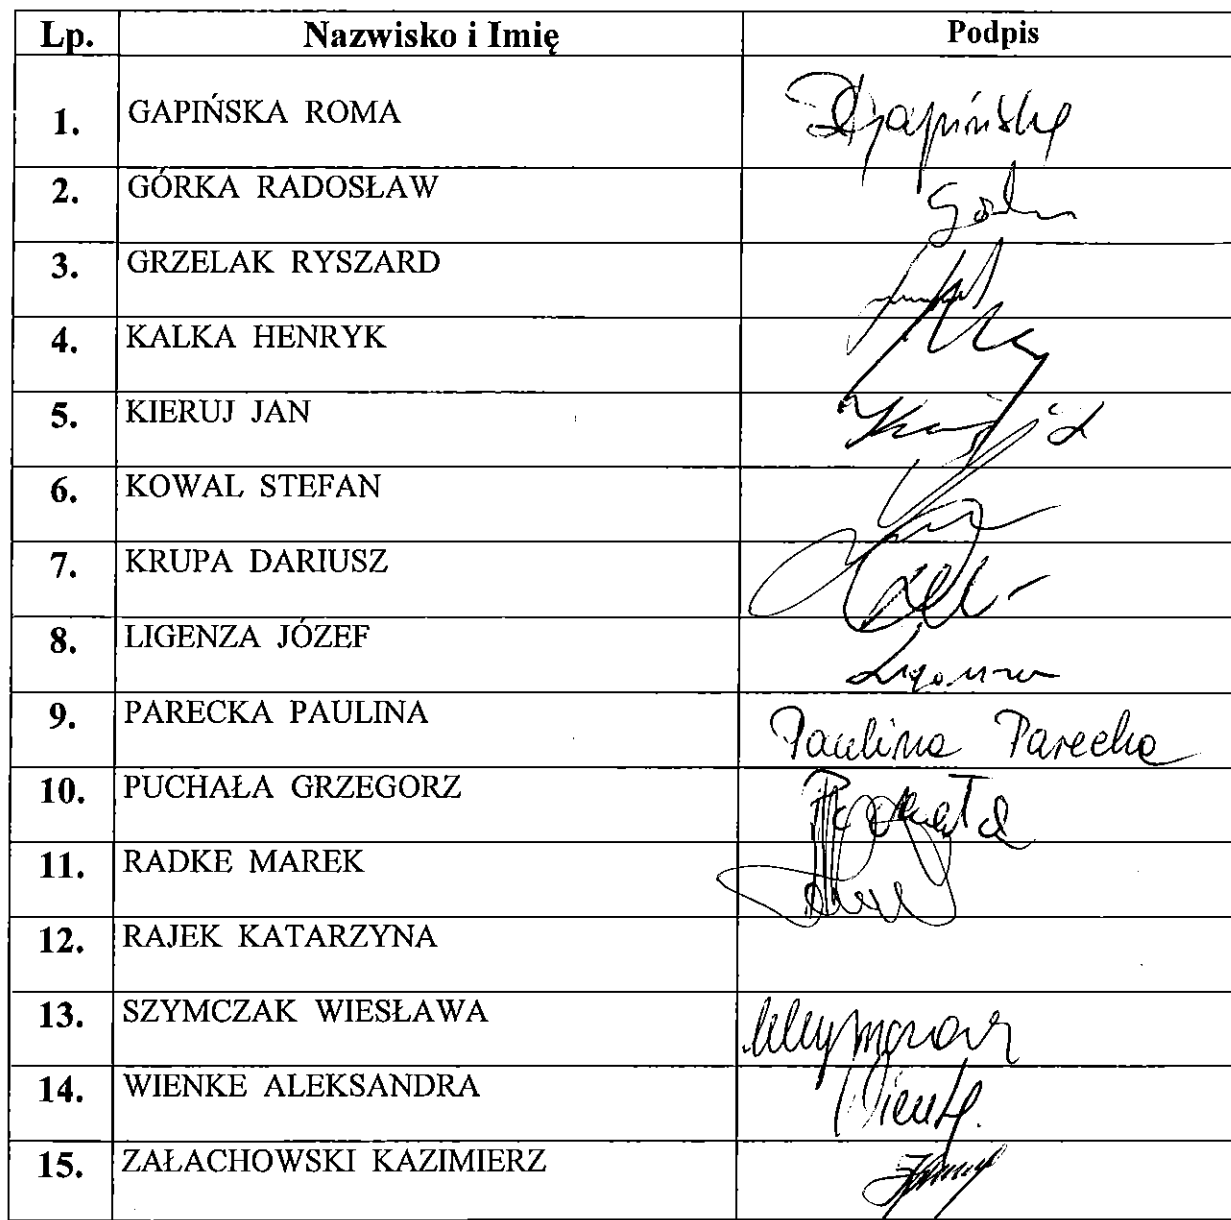 Lp. Nazwisko i Imię Podpis
1. GAPIŃSKA ROMA RGapińska
2. GÓRKA RADOSŁAW
3. GRZELAK RYSZARD
4. KALKA HENRYK
5. KIERUJ JAN
6. KOWAL STEFAN
7. KRUPA DARIUSZ
8. LIGENZA JÓZEF
9. PARECKA PAULINA Paulina Parecka
10. PUCHAŁA GRZEGORZ
11. RADKE MAREK
12. RAJEK KATARZYNA
13. SZYMCZAK WIESŁAWA
14. WIENKE ALEKSANDRA
15. ZAŁACHOWSKI KAZIMIERZ